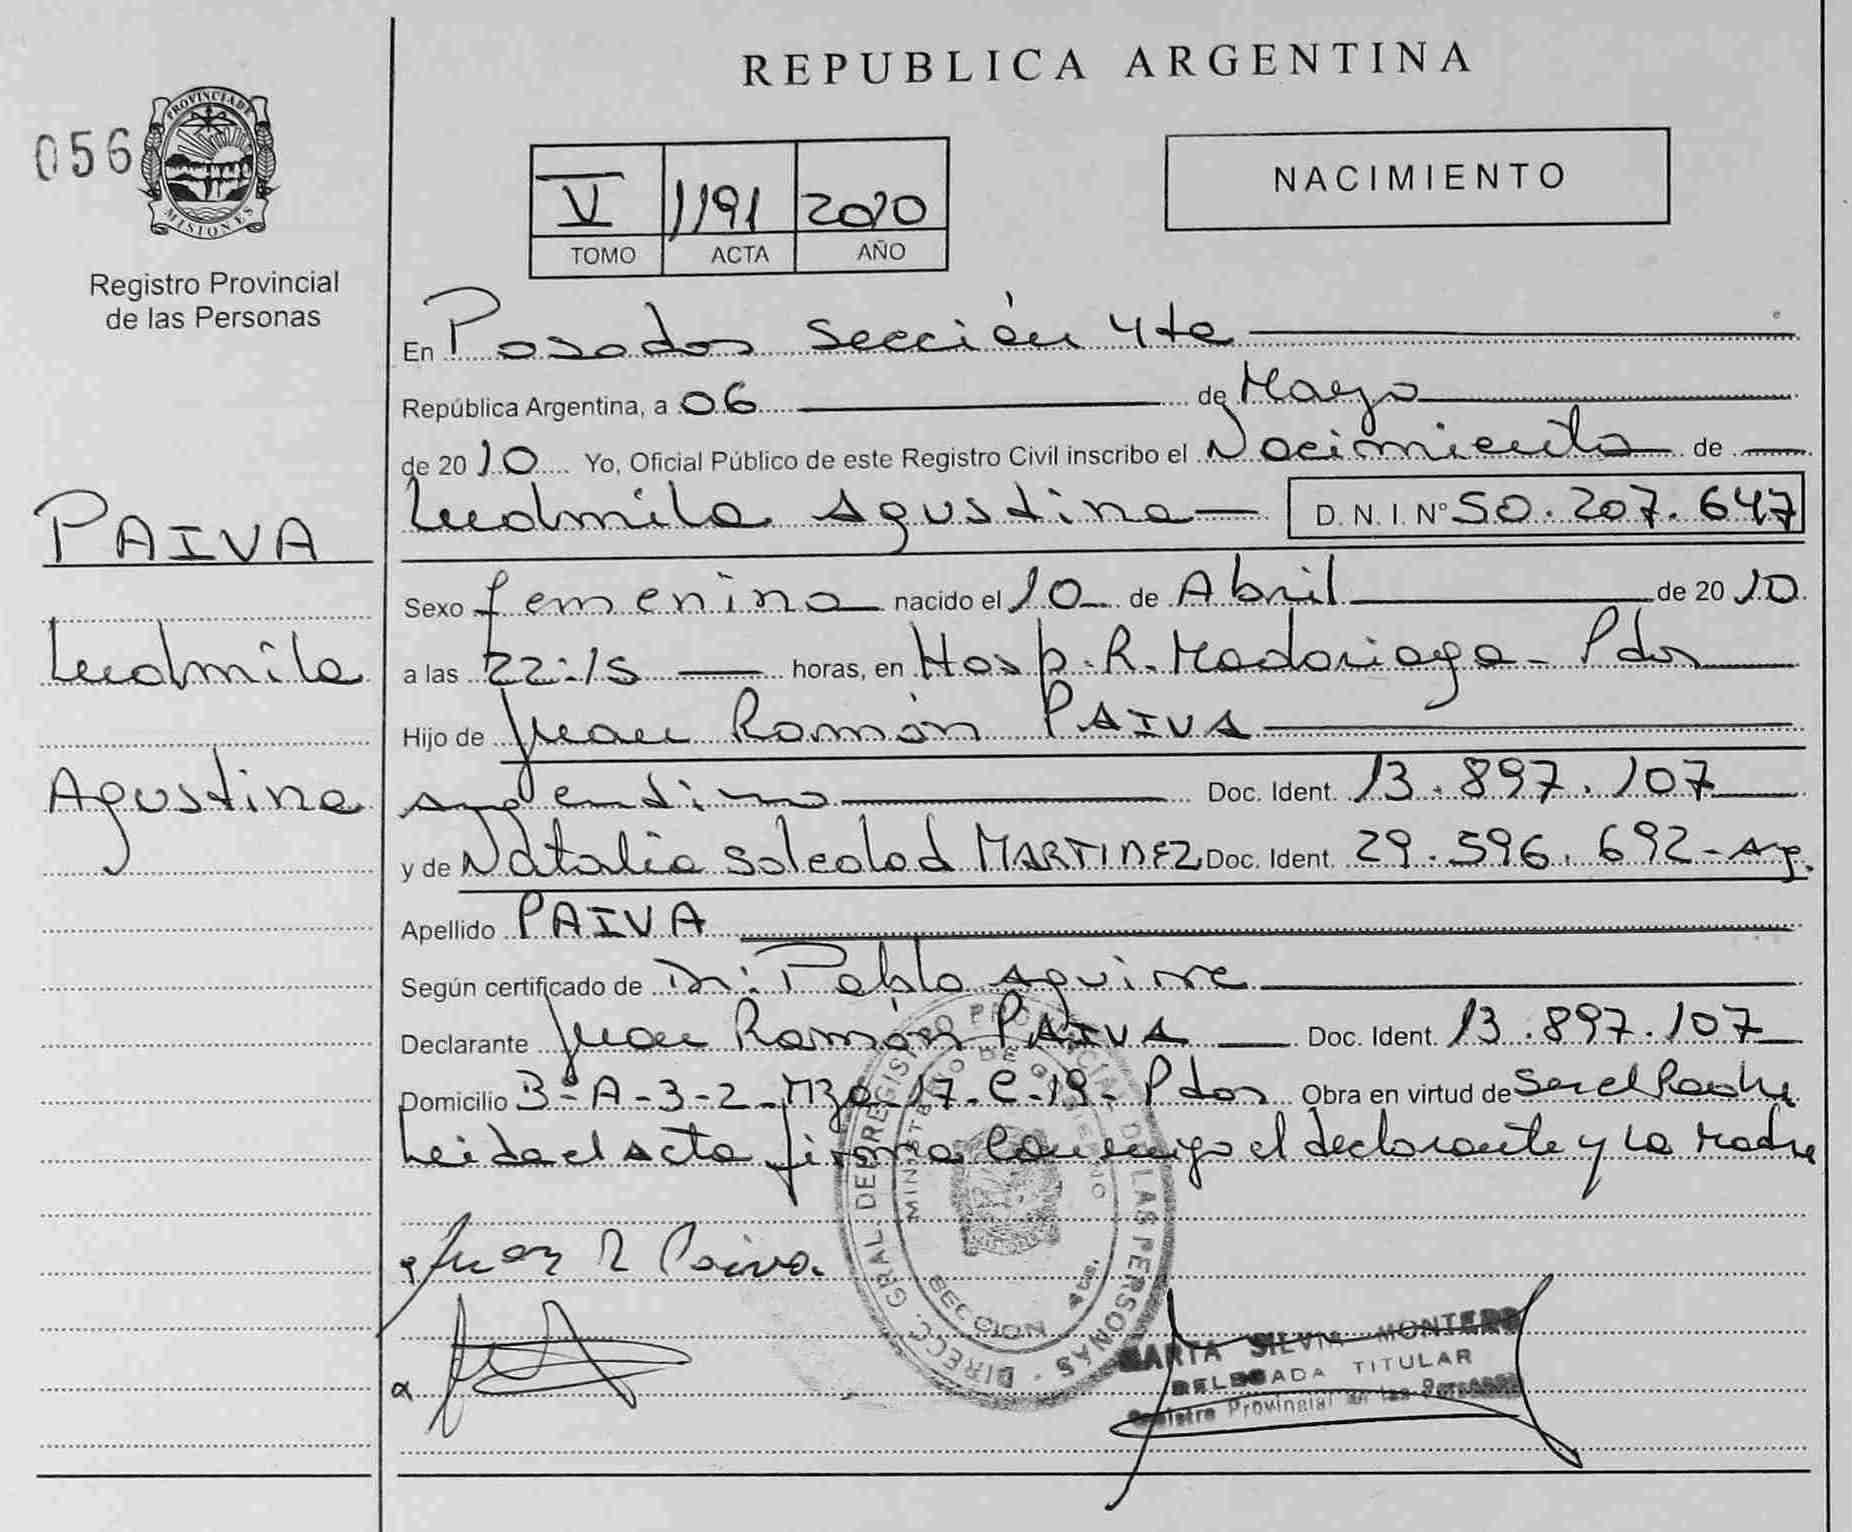 REPUBLICA ARGENTINA
056
PROVINCIA DE
MISIONES
Registro Provincial
de las Personas
V 1191 2010
TOMO ACTA AÑO
NACIMIENTO
PAIVA
Ludmila
Agustina
En Posadas Sección 4ta
República Argentina, a 06 de Mayo
de 2010 Yo, Oficial Público de este Registro Civil inscribo el Nacimiento de
Ludmila Agustina D. N. I. N° 50.207.647
Sexo femenino nacido el 10 de Abril de 2010
a las 22:15 horas, en Hosp. R. Madariaga - Pdas
Hijo de Juan Ramón PAIVA
argentino Doc. Ident. 13.897.107
y de Natalia Soledad MARTINEZ Doc. Ident. 29.596.692 - arg.
Apellido PAIVA
Según certificado de Dr. Pablo Aguirre
Declarante Juan Ramón PAIVA Doc. Ident. 13.897.107
Domicilio B-A-3-2-Mza-17-C-19-Pdas Obra en virtud de Ser el Padre
Leida el acta firma conmigo el declarante y la Madre
Juan R Paiva.
DIRECC. GRAL. DEL REGISTRO PROVINCIAL DE LAS PERSONAS
MINISTERIO DE GOBIERNO
SECCION 4ta.
MARTA SILVIA MONTERO
DELEGADA TITULAR
Registro Provincial de las Personas